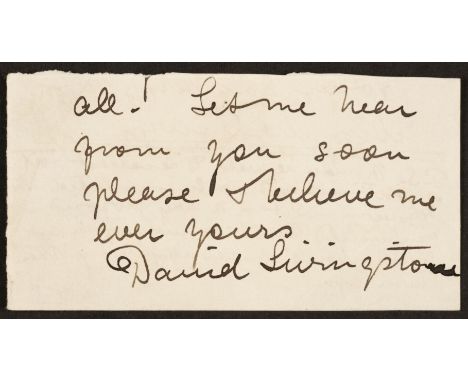 all! Let me hear
from you soon
please & believe me
ever yours
David Livingstone